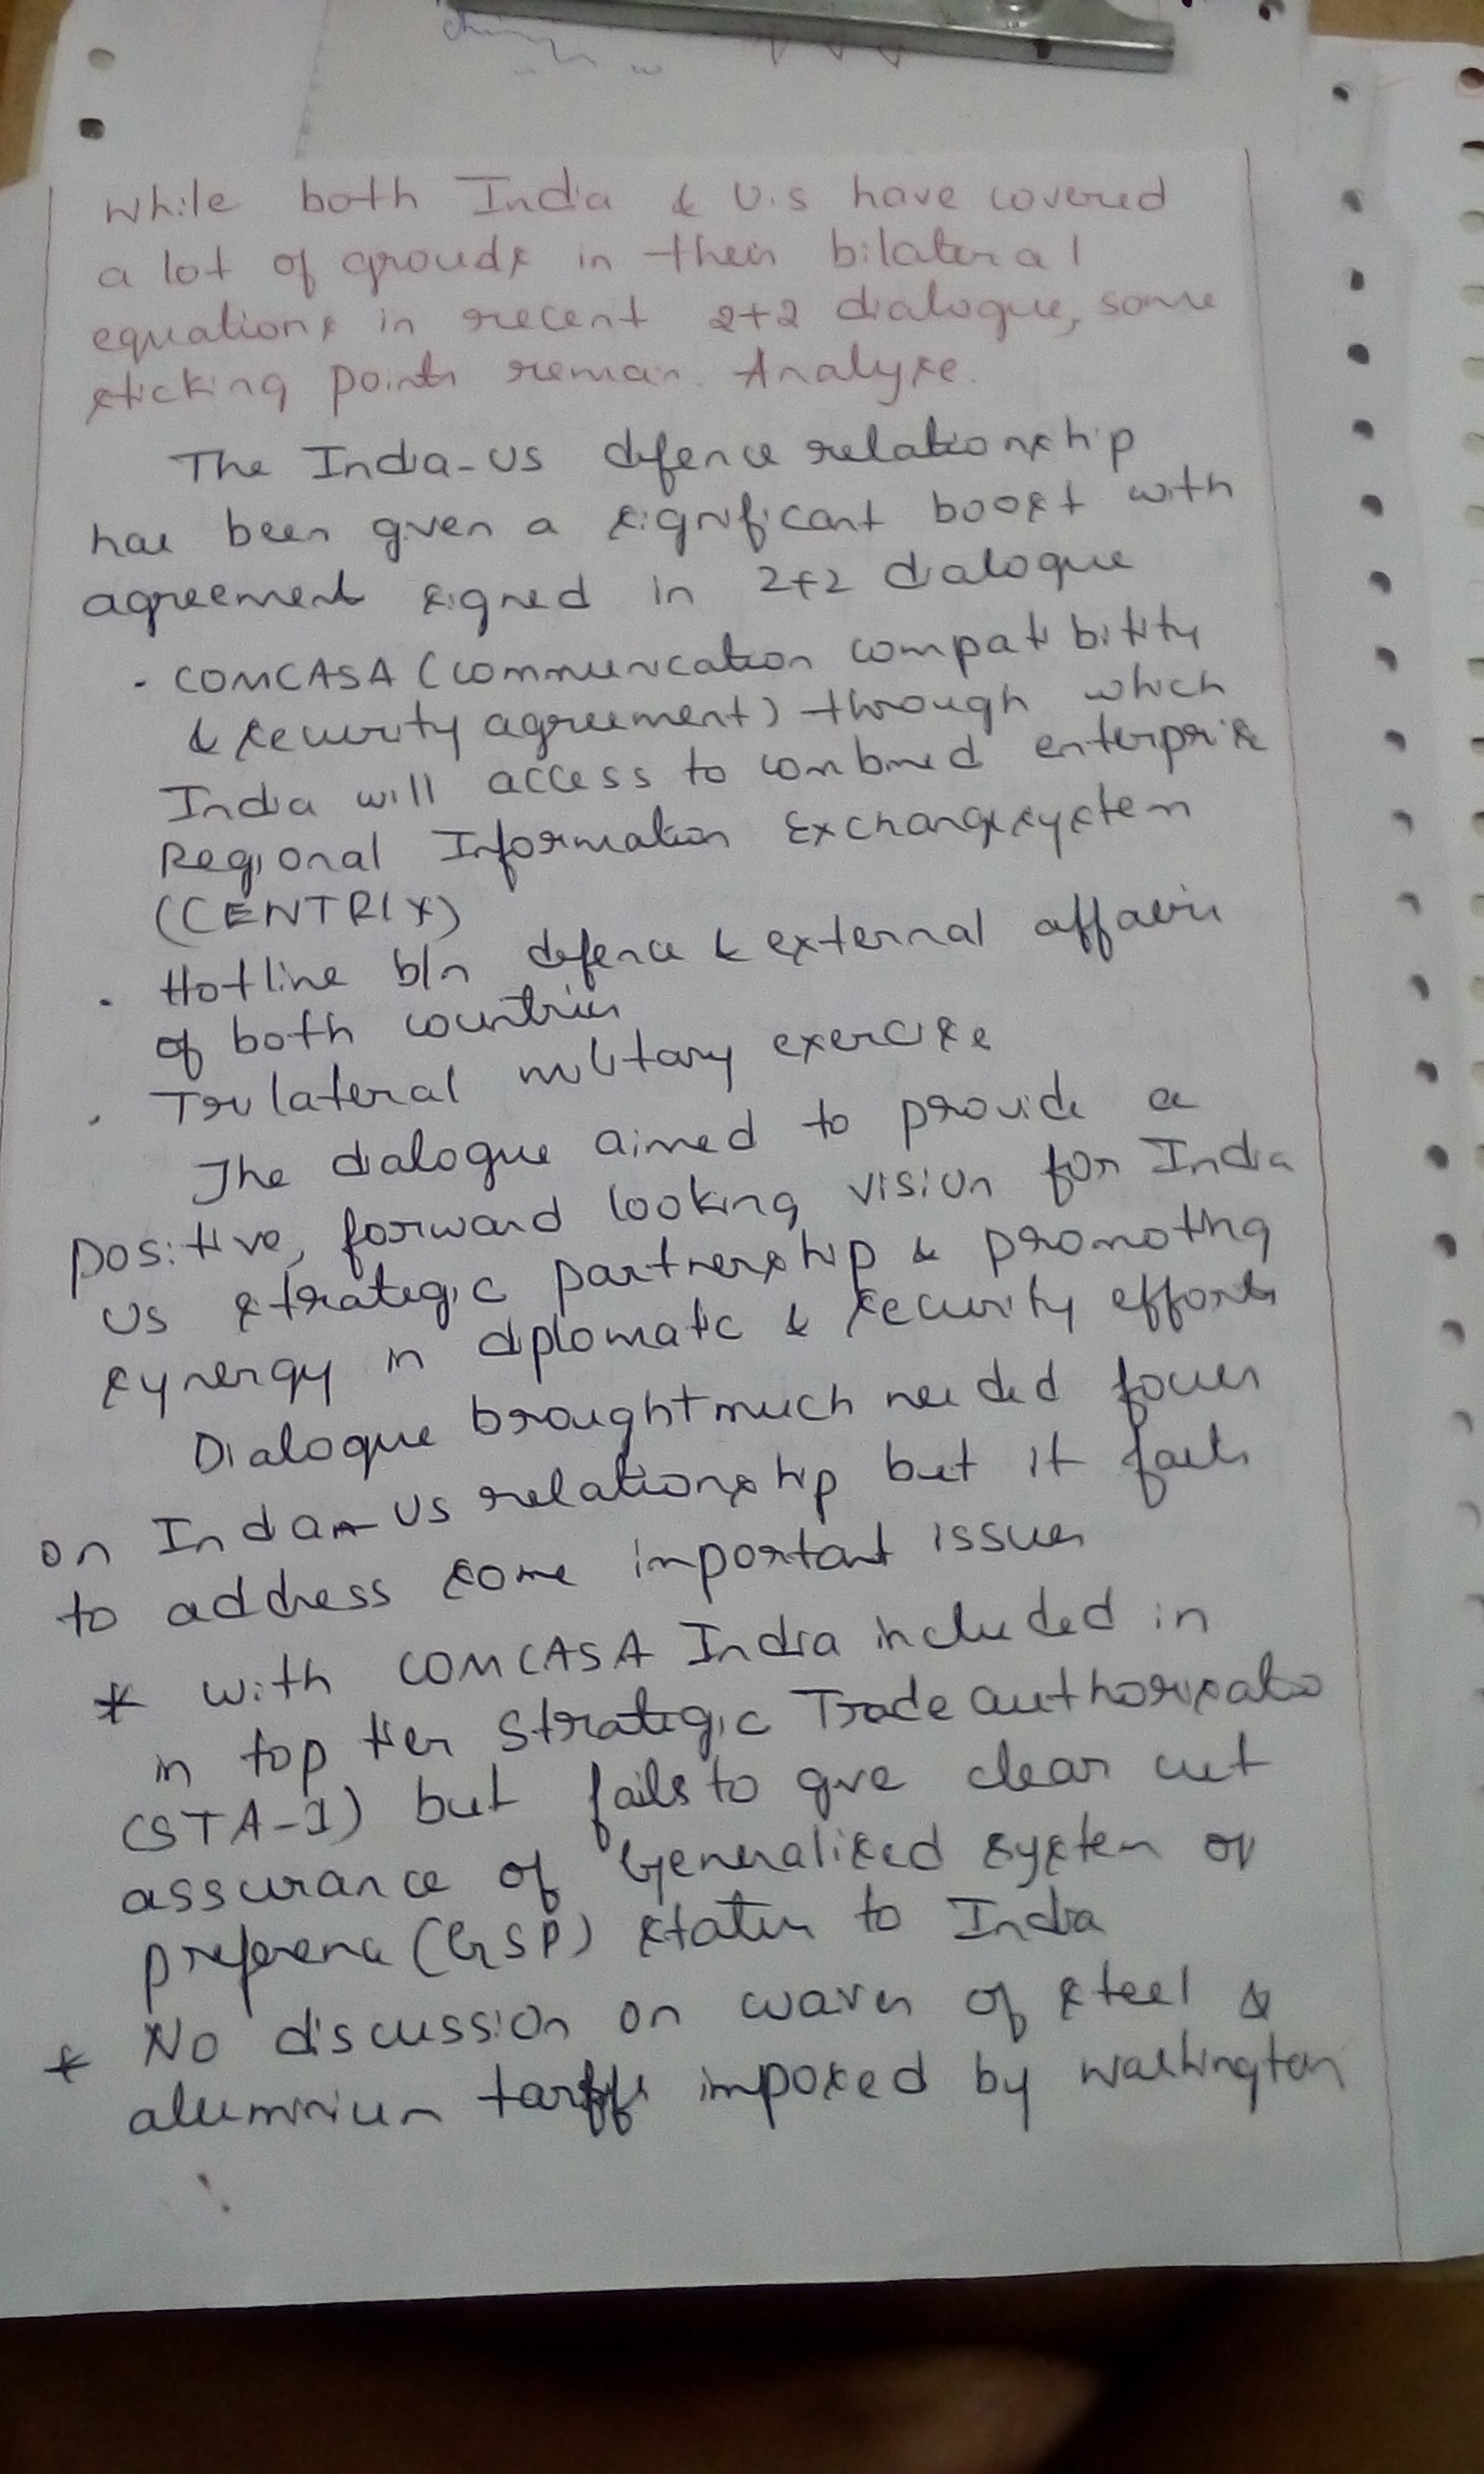 While both India & U.S have covered
a lot of grounds in their bilateral
equations in recent 2+2 dialogue, some
sticking points remain. Analyse.
The India-US defence relationship
has been given a significant boost with
agreement signed in 2+2 dialogue
· COMCASA (communication compatibility
& security agreement) through which
India will access to combined enterprise
Regional Information Exchange system
(CENTRIX)
· Hotline b/n defence & external affairs
of both countries
· Trilateral military exercise
The dialogue aimed to provide a
positive, forward looking vision for India
US strategic partnership & promoting
synergy in diplomatic & security efforts
Dialogue brought much needed focus
on India-US relationship but it fails
to address some important issues
* With COMCASA India included in
in top tier Strategic Trade authorisatio
(STA-1) but fails to give clear cut
assurance of Generalised system of
preference (GSP) status to India
* No discussion on waver of steel &
aluminium tariffs imposed by washington